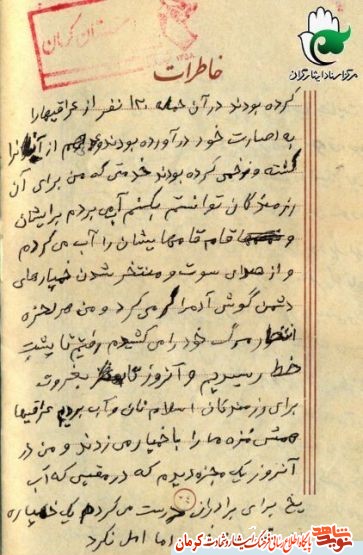 مرکز اسناد ایثارگران
خاطرات
کرده بودند در آن حمله ۱۲۰ نفر از عراقیها را
به اصارت خود در آورده بودند و هم از آنها را
کشته و زخمی کرده بودند خدمتی که من برای آن
رزمندگان توانستم بکنم آبی بردم برایشان
و قام قامهایشان را آب می کردم
و از صدای سوت و منتخر شدن خمپارهای
دشمن گوش آدم را کر می کرد و من هر لحزه
انتظار مرگ خود را می کشیدم رفتیم تا پشت
خط رسیدیم و آنروز تا بغروب
برای رزمندگان اسلام نان و آب بردیم عراقیها
همش مزه ما را با خمپار می زدند و من در
آنروز یک مجزه دیدم که در مقسی که آب
یخ برای برادران درست می کردم یک خمپاره
اما امل نکرد
نوید شاهد
پایگاه اطلاع رسانی فرهنگ ایثار و شهادت کرمان